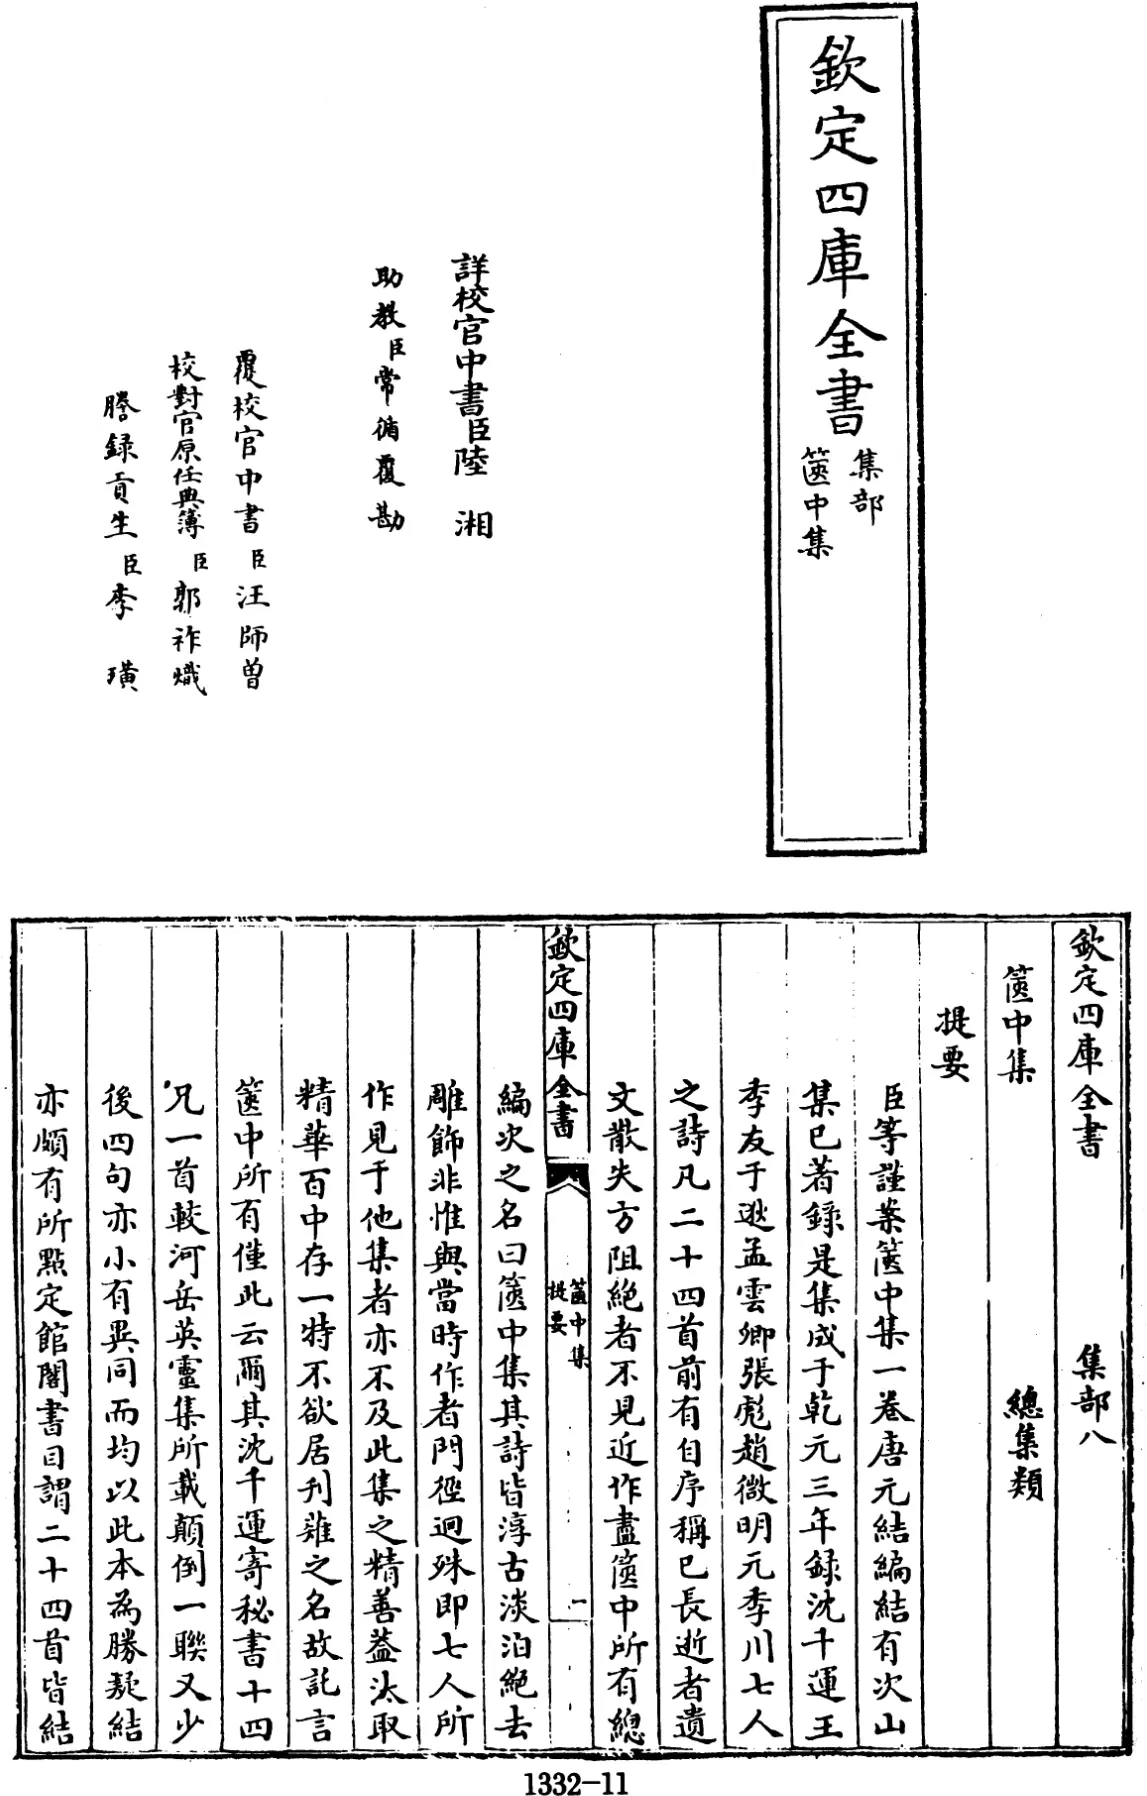 欽定四庫全書
集部
篋中集
詳校官中書臣陸湘
助教臣常循覆勘
覆校官中書臣汪師曾
校對官原任典簿臣郭祚熾
謄録貢生臣李璜
欽定四庫全書 集部八
篋中集 總集類
提要
臣等謹案篋中集一卷唐元結編結有次山
集已著錄是集成于乾元三年録沈千運王
季友于逖孟雲卿張彪趙微明元季川七人
之詩凡二十四首前有自序稱已長逝者遺
文散失方阻絶者不見近作盡篋中所有總
欽定四庫全書
篋中集
提要
一
編次之名曰篋中集其詩皆淳古淡泊絶去
雕飾非惟與當時作者門徑迥殊即七人所
作見于他集者亦不及此集之精善葢汰取
精華百中存一特不欲居刋薙之名故託言
篋中所有僅此云爾其沈千運寄秘書十四
兄一首較河岳英靈集所載顛倒一聯又少
後四句亦小有異同而均以此本為勝疑結
亦頗有所㸃定館閣書目謂二十四首皆結
1332-11